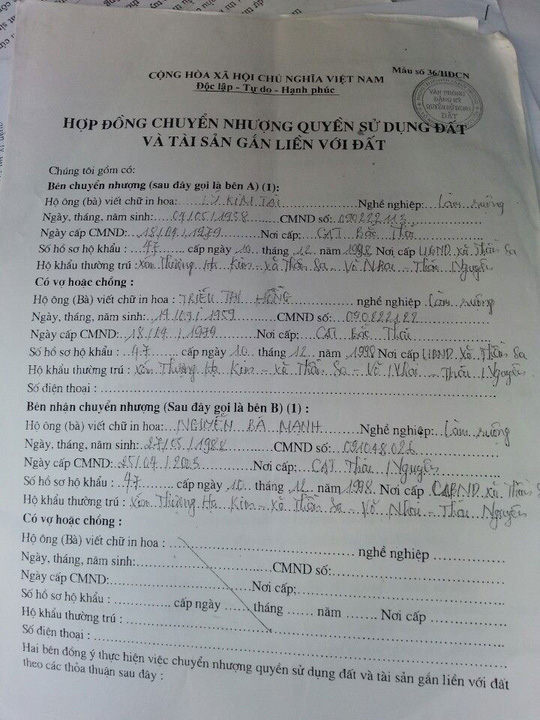 Mẫu số 36/HĐCN
CỘNG HÒA XÃ HỘI CHỦ NGHĨA VIỆT NAM
Độc lập - Tự do - Hạnh phúc
VĂN PHÒNG
ĐĂNG KÝ
QUYỀN SỬ DỤNG
ĐẤT
HỢP ĐỒNG CHUYỂN NHƯỢNG QUYỀN SỬ DỤNG ĐẤT
VÀ TÀI SẢN GẮN LIỀN VỚI ĐẤT
Chúng tôi gồm có:
Bên chuyển nhượng (sau đây gọi là bên A) (1):
Hộ ông (bà) viết chữ in hoa : LÝ KIM TÀI Nghề nghiệp: Làm ruộng
Ngày, tháng, năm sinh: 04/05/1958 CMND số: 090222113
Ngày cấp CMND: 18/09/1979 Nơi cấp: CAT Bắc Thái
Số hồ sơ hộ khẩu : 47 cấp ngày 10 tháng 12 năm 1998 Nơi cấp UBND xã Thần Sa
Hộ khẩu thường trú : xóm Thượng Hạ Kim - xã Thần Sa - Võ Nhai - Thái Nguyên
Có vợ hoặc chồng :
Hộ ông (Bà) viết chữ in hoa : TRIỆU THỊ HỒNG nghề nghiệp Làm ruộng
Ngày, tháng, năm sinh: 1959 CMND số: 090222122
Ngày cấp CMND: 18/09/1979 Nơi cấp; CAT Bắc Thái
Số hồ sơ hộ khẩu : 47 cấp ngày 10 tháng 12 năm 1998 Nơi cấp UBND xã Thần Sa
Hộ khẩu thường trú : xóm Thượng Hạ Kim - xã Thần Sa - Võ Nhai - Thái Nguyên
Số điện thoại :
Bên nhận chuyển nhượng (Sau đây gọi là bên B) (1) :
Hộ ông (bà) viết chữ in hoa: NGUYỄN BÁ MẠNH Nghề nghiệp: Làm ruộng
Ngày, tháng, năm sinh: 27/05/1988 CMND số: 091048026
Ngày cấp CMND: 25/04/2005 Nơi cấp: CAT Thái Nguyên
Số hồ sơ hộ khẩu : 47 cấp ngày 10 tháng 12 năm 1998 Nơi cấp UBND xã Thần Sa
Hộ khẩu thường trú: xóm Thượng Hạ Kim - xã Thần Sa - Võ Nhai - Thái Nguyên
Có vợ hoặc chồng :
Hộ ông (Bà) viết chữ in hoa : nghề nghiệp
Ngày, tháng, năm sinh: CMND số:
Ngày cấp CMND: Nơi cấp;
Số hồ sơ hộ khẩu : cấp ngày tháng năm Nơi cấp
Hộ khẩu thường trú :
Số điện thoại :
Hai bên đồng ý thực hiện việc chuyển nhượng quyền sử dụng đất và tài sản gắn liền với đất
theo các thỏa thuận sau đây :